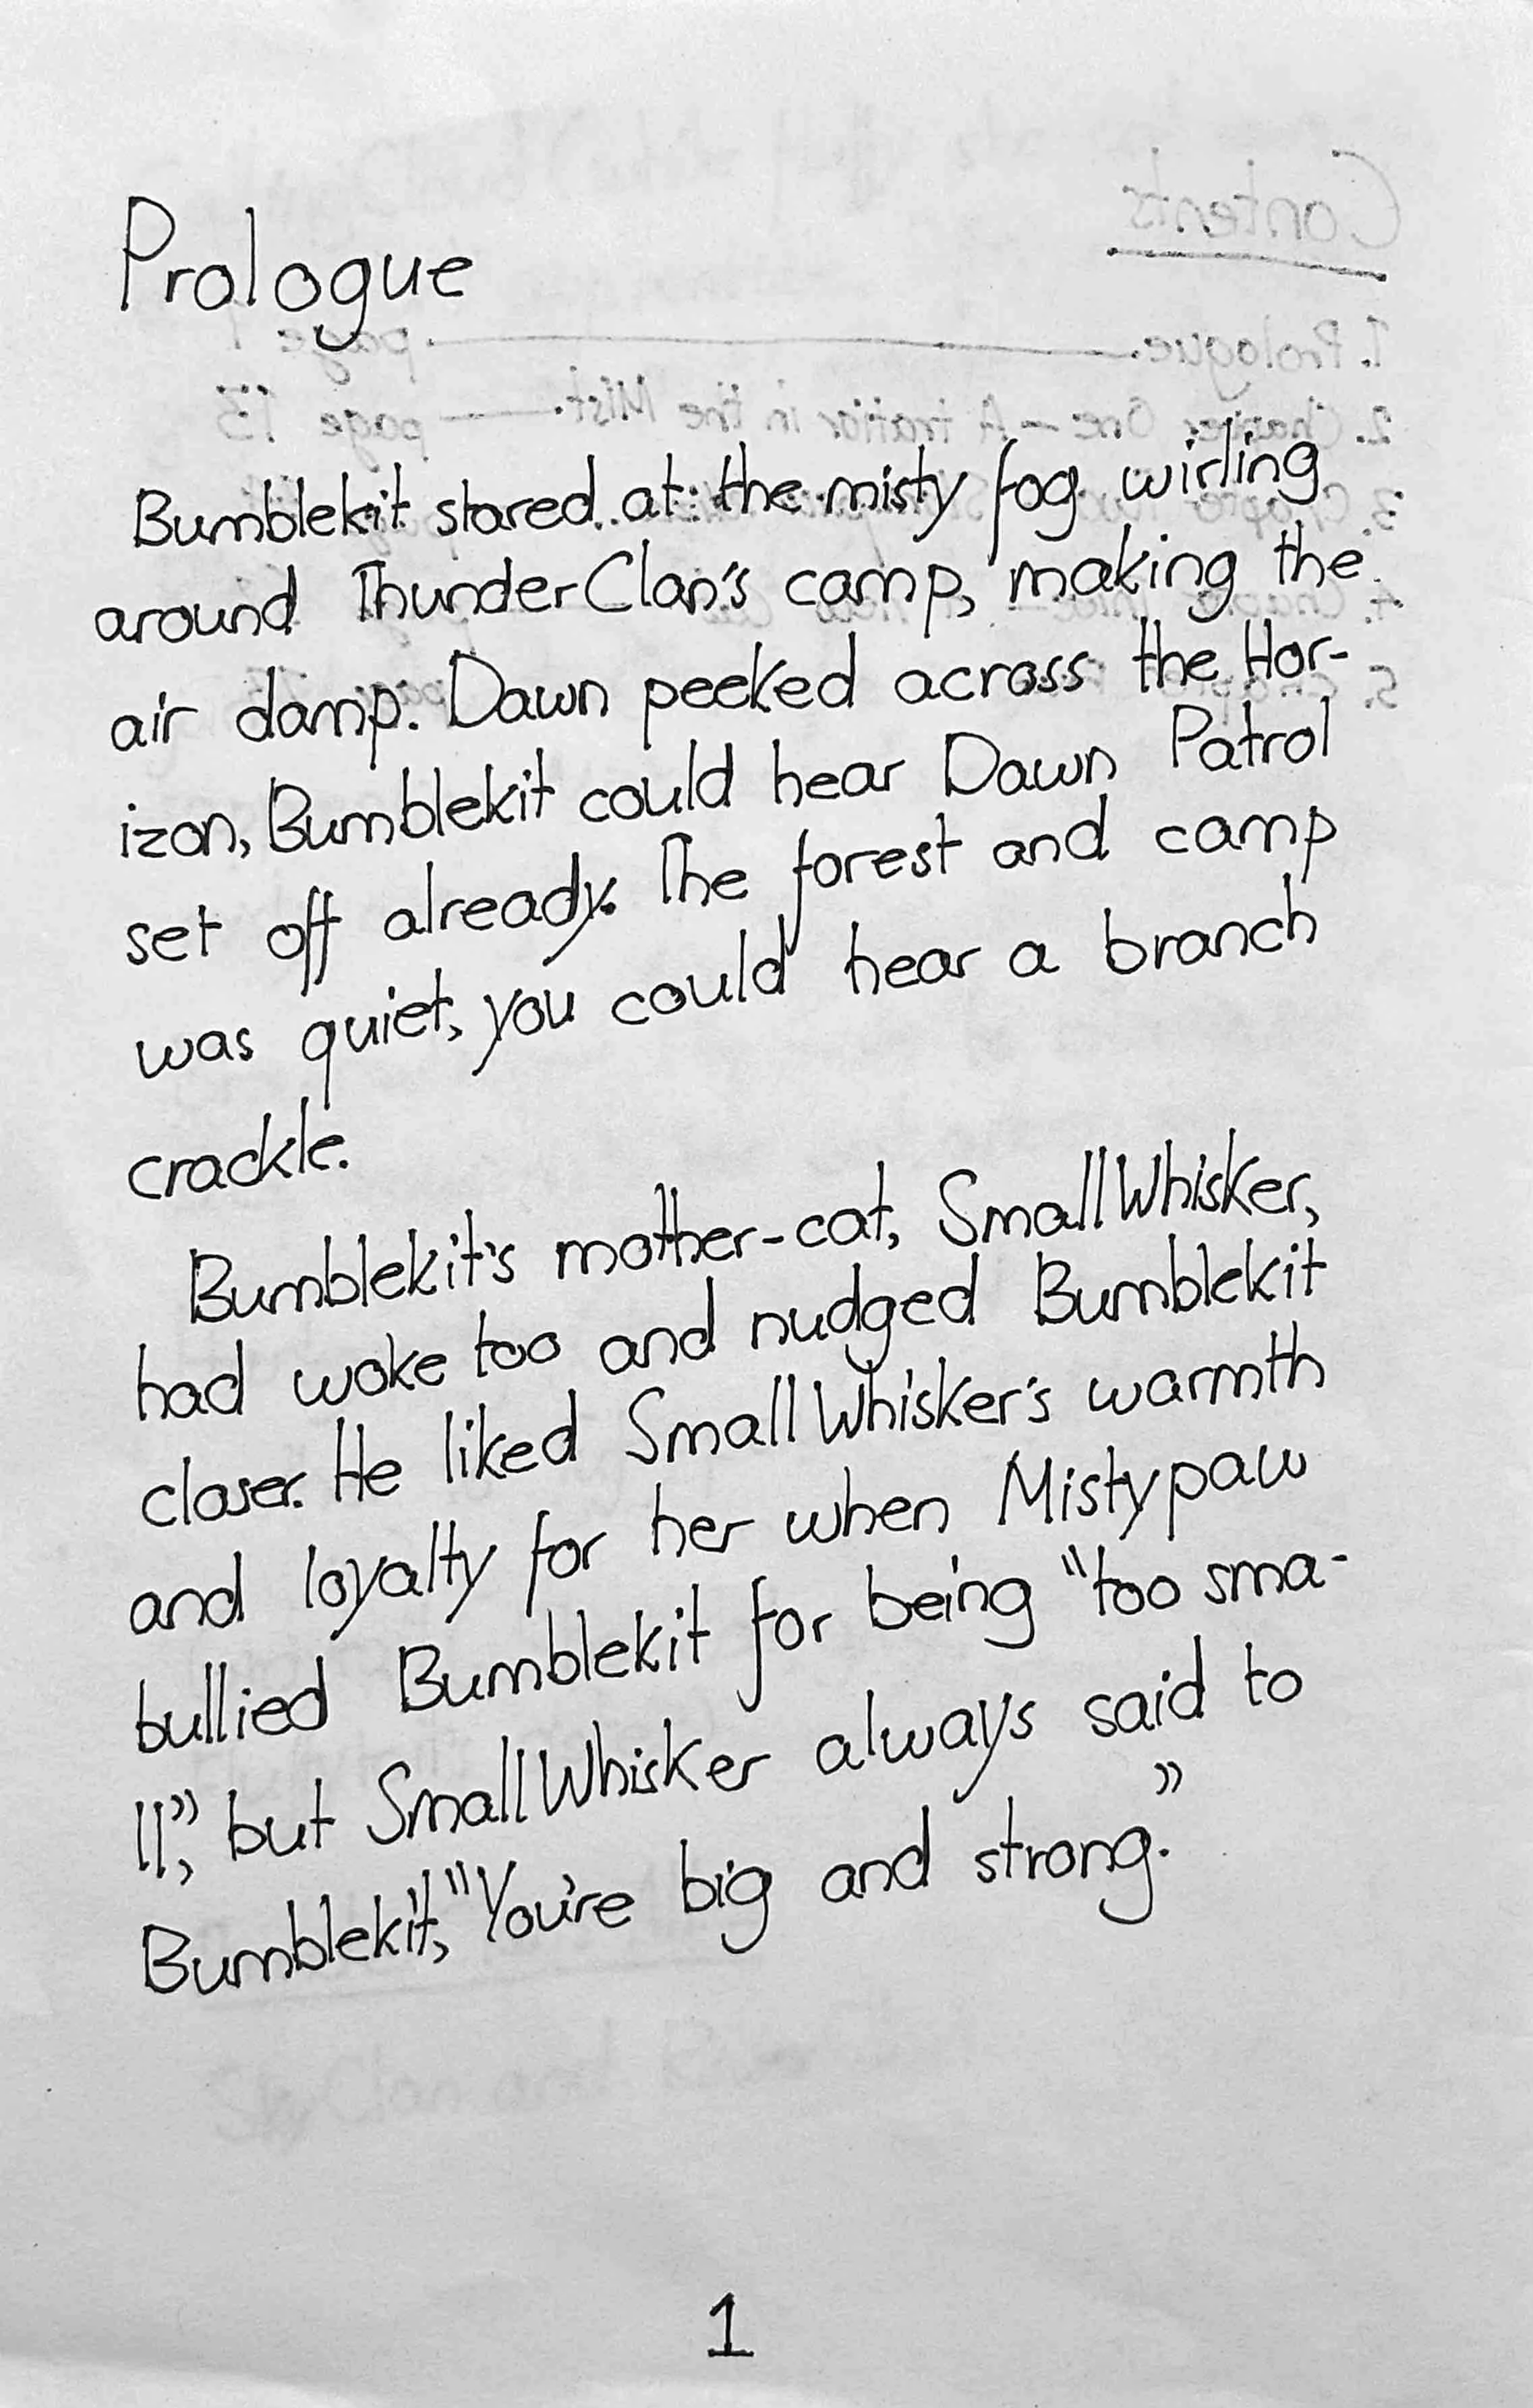 Prologue
Bumblekit stared at the misty fog wirling
around ThunderClan's camp, making the
air damp. Dawn peeked across the Hor-
izon, Bumblekit could hear Dawn Patrol
set off already. The forest and camp
was quiet, you could hear a branch
crackle.
Bumblekit's mother-cat, SmallWhisker,
had woke too and nudged Bumblekit
closer. He liked SmallWhisker's warmth
and loyalty for her when Mistypaw
bullied Bumblekit for being "too sma-
ll", but SmallWhisker always said to
Bumblekit, "You're big and strong."
1
Contents
1. Prologue. page 1
2. Chapter One - A traitior in the Mist. page 13